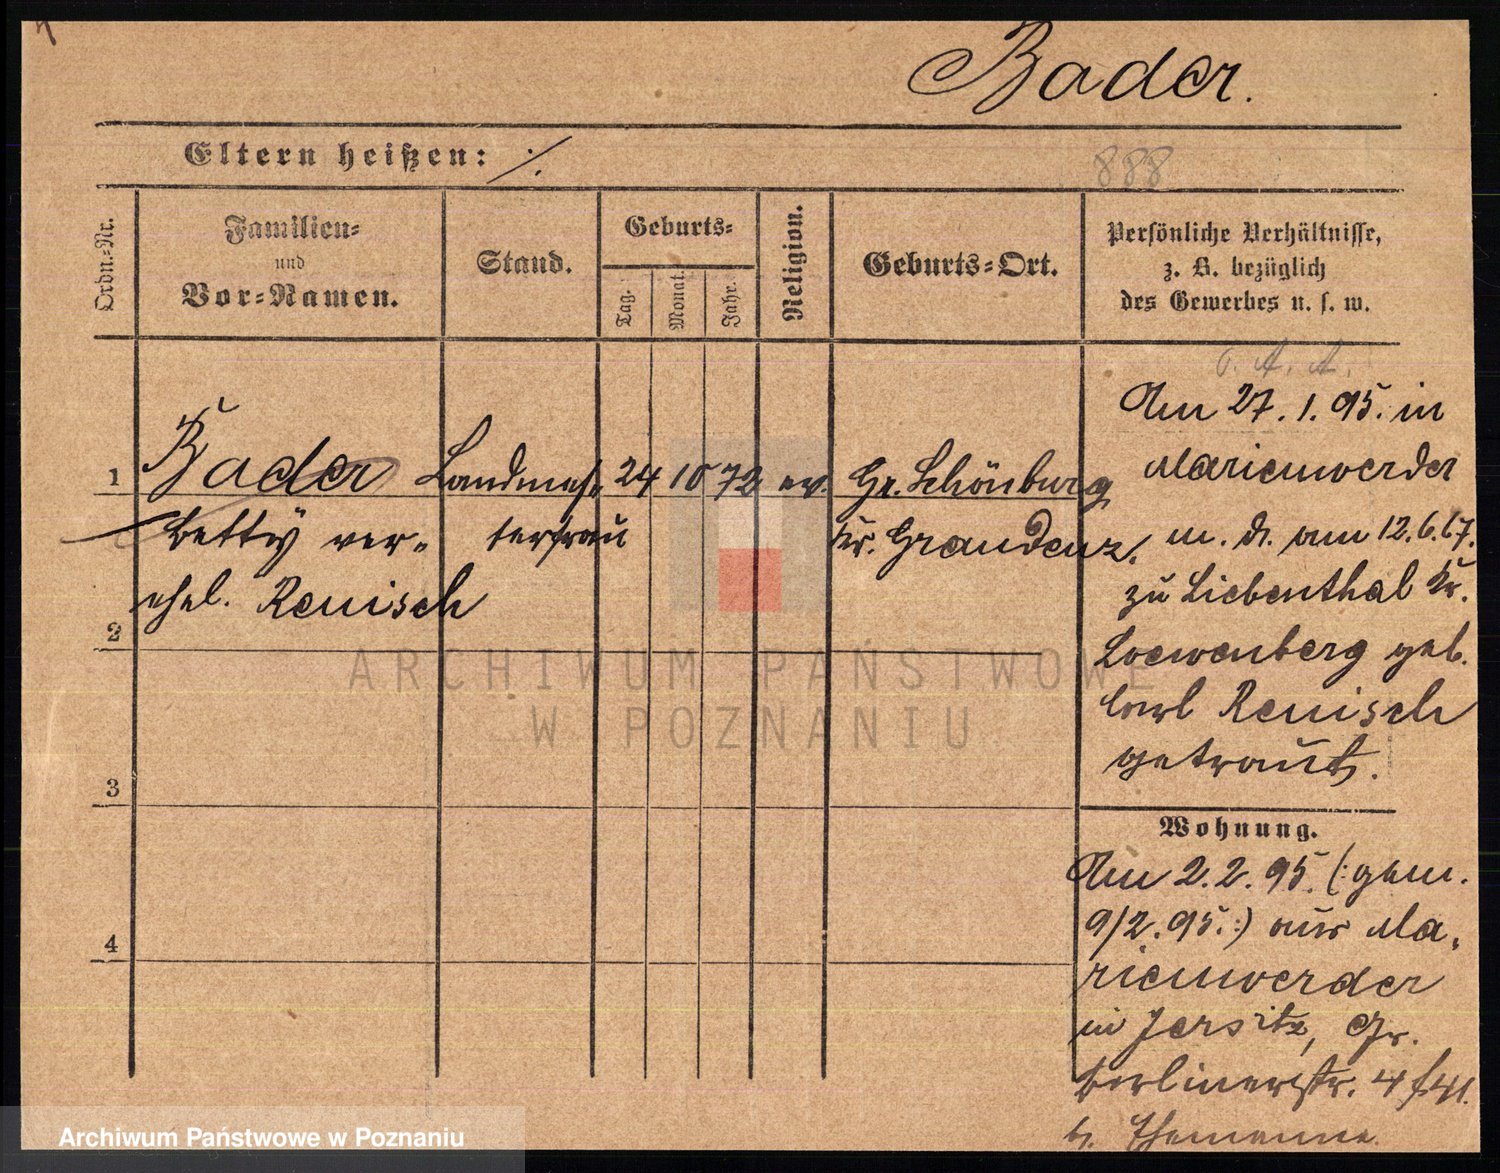 Bader.
Eltern heißen: ·/.
888
Ordn.-Nr.
Familien-
und
Vor-Namen.
Stand.
Geburts-
Tag.
Monat.
Jahr.
Religion.
Geburts-Ort.
Persönliche Verhältnisse,
z. B. bezüglich
des Gewerbes u. s. w.
1
Bader
Betty ver-
ehel. Renisch
Landmes-
serfrau
24 10 72 ev.
Gr. Schönburg
Kr. Graudenz.
A. A.
Am 27. 1. 95. in
Marienwerder
m. d. am 12.6.67.
zu Liebenthal Kr.
Loewenberg geb.
Carl Renisch
getraut.
2
3
4
Wohnung.
Am 2. 2. 95. (:gem.
9/2. 95.:) aus Ma-
rienwerder
in Jersitz, Gr.
Berlinerstr. 4
b.
ARCHIWUM PAŃSTWOWE
W POZNANIU
Archiwum Państwowe w Poznaniu